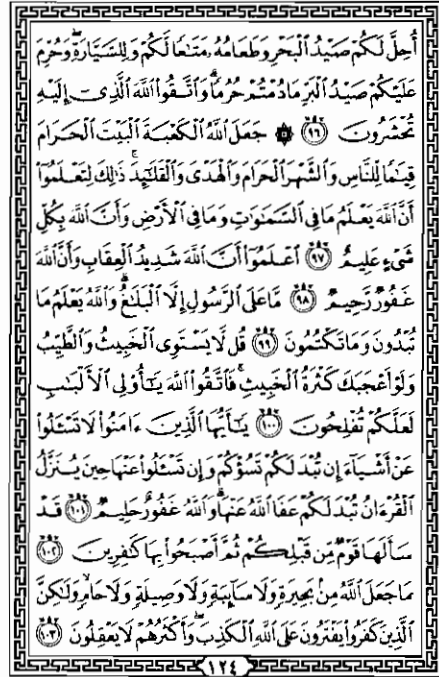 أُحِلَّ لَكُمْ صَيْدُ ٱلْبَحْرِ وَطَعَامُهُۥ مَتَٰعًا لَّكُمْ وَلِلسَّيَّارَةِ ۖ وَحُرِّمَ
عَلَيْكُمْ صَيْدُ ٱلْبَرِّ مَا دُمْتُمْ حُرُمًا ۗ وَٱتَّقُوا۟ ٱللَّهَ ٱلَّذِىٓ إِلَيْهِ
تُحْشَرُونَ ﴿٩٦﴾ ۞ جَعَلَ ٱللَّهُ ٱلْكَعْبَةَ ٱلْبَيْتَ ٱلْحَرَامَ
قِيَٰمًا لِّلنَّاسِ وَٱلشَّهْرَ ٱلْحَرَامَ وَٱلْهَدْىَ وَٱلْقَلَٰٓئِدَ ۚ ذَٰلِكَ لِتَعْلَمُوٓا۟
أَنَّ ٱللَّهَ يَعْلَمُ مَا فِى ٱلسَّمَٰوَٰتِ وَمَا فِى ٱلْأَرْضِ وَأَنَّ ٱللَّهَ بِكُلِّ
شَىْءٍ عَلِيمٌ ﴿٩٧﴾ ٱعْلَمُوٓا۟ أَنَّ ٱللَّهَ شَدِيدُ ٱلْعِقَابِ وَأَنَّ ٱللَّهَ
غَفُورٌ رَّحِيمٌ ﴿٩٨﴾ مَّا عَلَى ٱلرَّسُولِ إِلَّا ٱلْبَلَٰغُ ۗ وَٱللَّهُ يَعْلَمُ مَا
تُبْدُونَ وَمَا تَكْتُمُونَ ﴿٩٩﴾ قُل لَّا يَسْتَوِى ٱلْخَبِيثُ وَٱلطَّيِّبُ
وَلَوْ أَعْجَبَكَ كَثْرَةُ ٱلْخَبِيثِ ۚ فَٱتَّقُوا۟ ٱللَّهَ يَٰٓأُو۟لِى ٱلْأَلْبَٰبِ
لَعَلَّكُمْ تُفْلِحُونَ ﴿١٠٠﴾ يَٰٓأَيُّهَا ٱلَّذِينَ ءَامَنُوا۟ لَا تَسْـَٔلُوا۟
عَنْ أَشْيَآءَ إِن تُبْدَ لَكُمْ تَسُؤْكُمْ وَإِن تَسْـَٔلُوا۟ عَنْهَا حِينَ يُنَزَّلُ
ٱلْقُرْءَانُ تُبْدَ لَكُمْ عَفَا ٱللَّهُ عَنْهَا ۗ وَٱللَّهُ غَفُورٌ حَلِيمٌ ﴿١٠١﴾ قَدْ
سَأَلَهَا قَوْمٌ مِّن قَبْلِكُمْ ثُمَّ أَصْبَحُوا۟ بِهَا كَٰفِرِينَ ﴿١٠٢﴾
مَا جَعَلَ ٱللَّهُ مِنۢ بَحِيرَةٍ وَلَا سَآئِبَةٍ وَلَا وَصِيلَةٍ وَلَا حَامٍ ۙ وَلَٰكِنَّ
ٱلَّذِينَ كَفَرُوا۟ يَفْتَرُونَ عَلَى ٱللَّهِ ٱلْكَذِبَ ۖ وَأَكْثَرُهُمْ لَا يَعْقِلُونَ ﴿١٠٣﴾
١٢٤